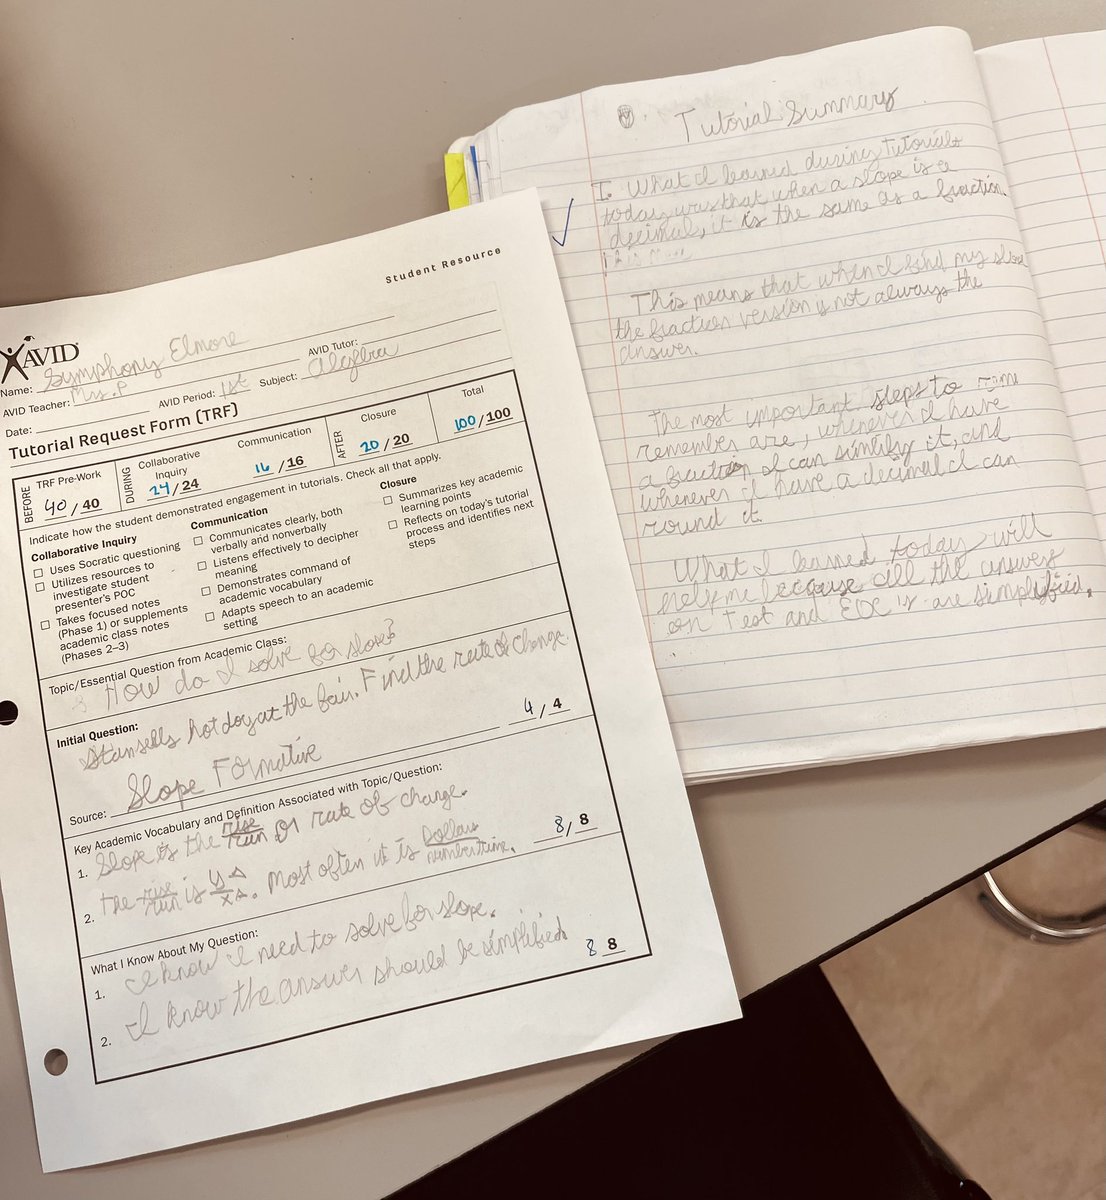 Student Resource
AVID
Name: Symphony Elmore
AVID Tutor:
AVID Teacher: Mrs. P
AVID Period: 1st
Subject: Algebra
Date:
Tutorial Request Form (TRF)
BEFORE
TRF Pre-Work
40/40
DURING
Collaborative
Inquiry
24/24
Communication
16/16
AFTER
Closure
20/20
Total
100/100
Indicate how the student demonstrated engagement in tutorials. Check all that apply.
Collaborative Inquiry
Uses Socratic questioning
Utilizes resources to
investigate student
presenter's POC
Takes focused notes
(Phase 1) or supplements
academic class notes
(Phases 2–3)
Communication
Communicates clearly, both
verbally and nonverbally
Listens effectively to decipher
meaning
Demonstrates command of
academic vocabulary
Adapts speech to an academic
setting
Closure
Summarizes key academic
learning points
Reflects on today's tutorial
process and identifies next
steps
Topic/Essential Question from Academic Class:
How do I solve for slose?
Initial Question:
Stan sells hot dog at the fair. Find the rate of change.
4/4
Source: Slope Formative
Key Academic Vocabulary and Definition Associated with Topic/Question:
1. Slope is the rise/run or rate of change.
8/8
2. the rise/run is y△/x△. Most often it is Dollars/number time.
What I Know About My Question:
1. I know I need to solve for slope.
8 8
2. I know the answer should be simplified.
Tutorial Summary
I. What I learned during tutorials
today was that when a slope is a
decimal, it is the same as a fraction.
This means that when I find my slope
the fraction version is not always the
answer.
The most important steps to
remember are, whenever I have
a fraction I can simtify it, and
whenever I have a decimal I can
round it.
What I learned today will
help me because all the answers
on Test and EOC's are simplified.